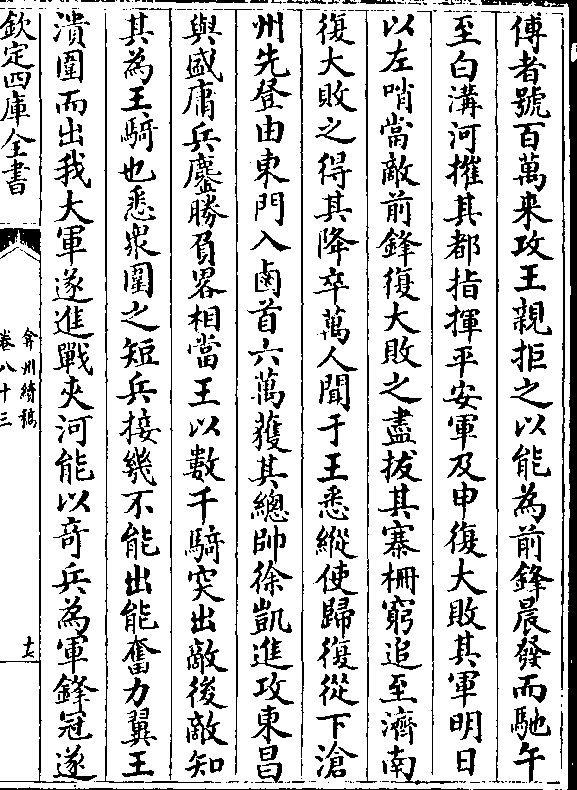 傅者號百萬來攻王親拒之以能為前鋒晨發而馳午
至白溝河摧其都指揮平安軍及申復大敗其軍明日
以左哨當敵前鋒復大敗之盡拔其寨柵窮追至濟南
復大敗之得其降卒萬人聞于王悉縱使歸復從下滄
州先登由東門入鹵首六萬獲其總帥徐凱進攻東昌
與盛庸兵鏖勝負畧相當王以數千騎突出敵後敵知
其為王騎也悉衆圍之短兵接幾不能出能奮力翼王
潰圍而出我大軍遂進戰夾河能以奇兵為軍鋒冠遂
欽定四庫全書
弇州續稿
卷八十三
十六